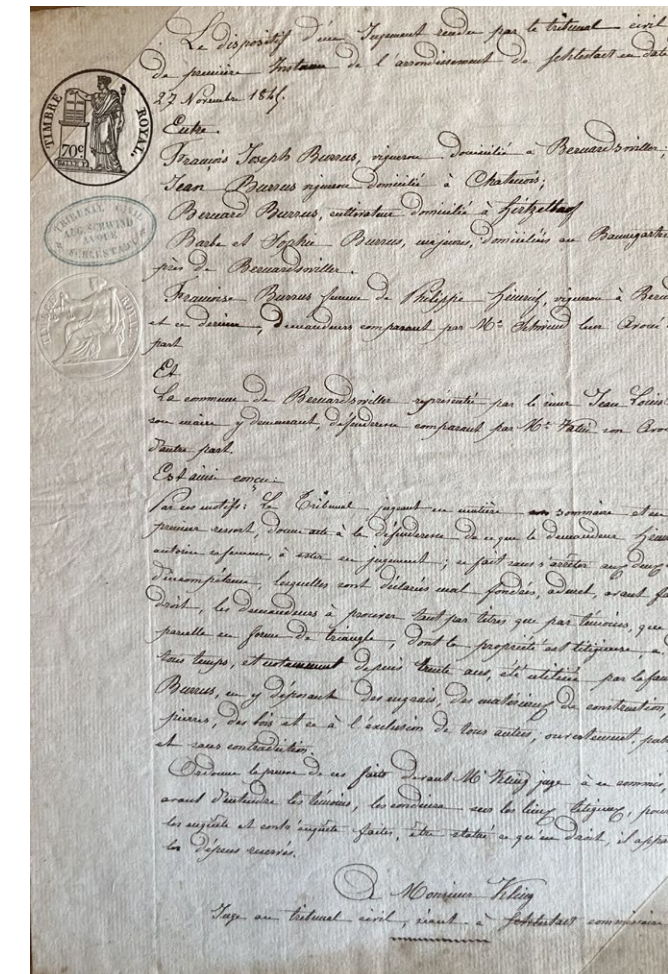 TIMBRE ROYAL
70c
TRIBUNAL CIVIL
AUG. SCHWIND
AVOUÉ
SCHLESTADT
Le dispositif d'un Jugement rendu par le tribunal civil
de première Instance de l'arrondissement de Schlestadt en date
27 Novembre 1845.
Entre
François Joseph Burrus, vigneron domicilié à Bernardswiller;
Jean Burrus vigneron domicilié à Chatenois;
Bernard Burrus, cultivateur domicilié à
Barbe et Sophie Burrus, majeures, domiciliées au Baumgarten
près de Bernardswiller.
Françoise Burrus femme de Philippe vigneron à
et ce dernier, demandeurs comparant par Me Schwind leur Avoué
part
Et
La commune de Bernardswiller représentée par le sieur Jean Louis
son maire y demeurant, défenderesse comparant par Me son
d'autre part.
Est ainsi conçu:
Par ces motifs: Le Tribunal jugeant en matière sommaire et en
premier ressort, donne acte à la défenderesse de ce que le demandeur
autorise sa femme, à ester en jugement; ce fait sans s'arrêter aux
d'incompétence, lesquelles sont déclarées mal fondées, admet, avant
droit, les demandeurs à prouver tant par titres que par témoins, que
parcelle en forme de triangle, dont la propriété est litigieuse, a
tous temps, et notamment depuis trente ans, été utilisée par la
Burrus, en y déposant des engrais, des matériaux de construction,
pierres, des bois et ce à l'exclusion de tous autres, ouvertement,
et sans contradiction.
Ordonne la preuve de ces faits devant Mr Kling juge à ce commis,
avant d'entendre les témoins, les conduira sur les lieux litigieux, pour
les enquête et contr'enquête faites, être statué ce qu'en droit, il
les dépens réservés.
A Monsieur Kling
Juge au tribunal civil, séant à Schlestadt commissaire